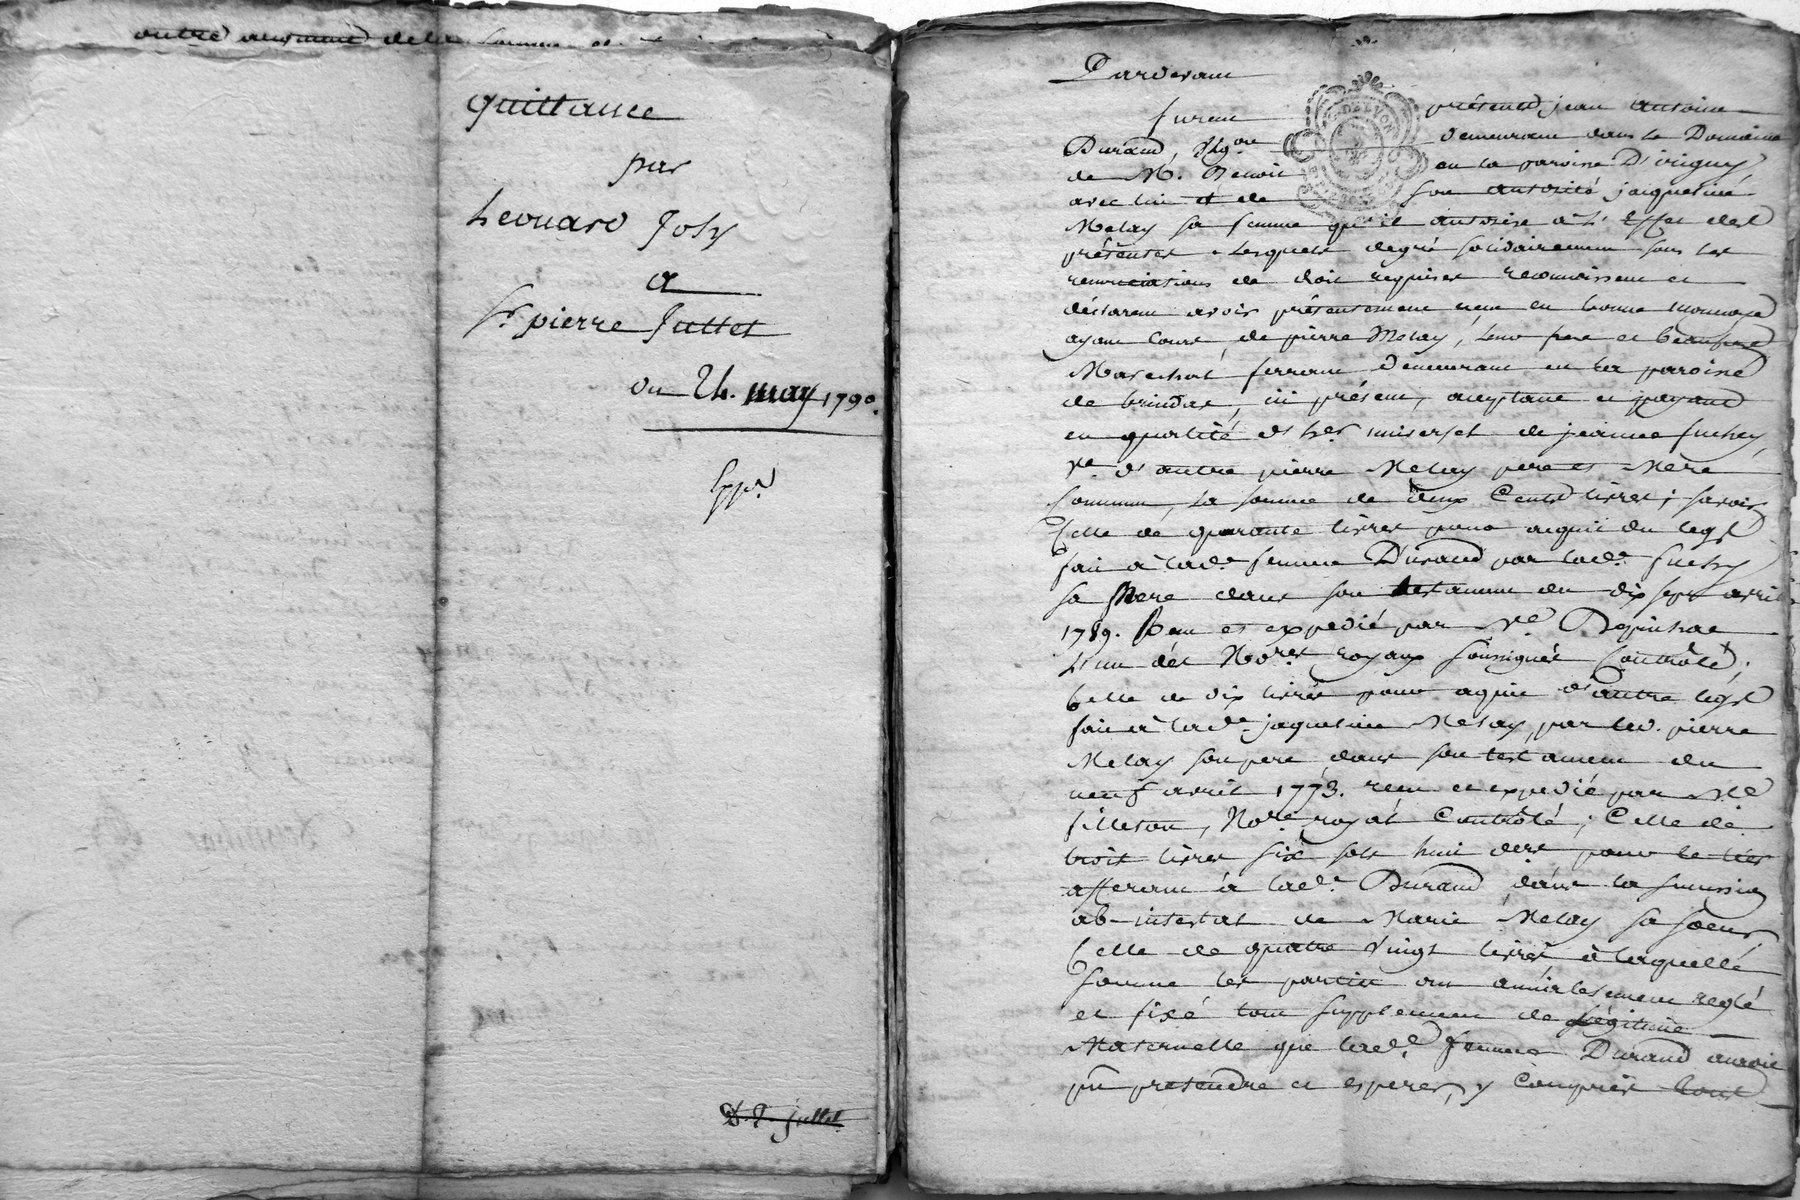 outre
quittance
par
Leonard Joly
a
Sr. pierre Jullet
du 24. may 1790.
Expn
D. P. Jullet
Pardevant
furent présents, jean antoine
Durand, demeurant dans le Domaine
de M. Benoit en la paroisse D'irigny
avec lui et de son autorité jacqueline
Melay sa femme qu'il autorise à L'Effet des
présentes. Lesquels de gré solidairement sous les
renonciations de droit requises reconnaissent et
déclarent avoir présentement reçu en bonne monnoye
ayant Cours, de pierre Melay, leur frere et beaufrere
Marechal ferrant Demeurant en la paroisse
de brindas, ici présent, acceptant et payant
en qualité d'her. universel de jeanne fuchey,
ve. d'autre pierre Melay pere et Mere
Commun, La somme de deux Cents livres; savoir
Celle de quarante livres pour acquit du legs
fait à lade. femme Durand par lade. fuchey
sa Mere dans son testament du dix sept avril
1789. Reçu et expedié par Me.
L'un des Nores. royaux soussignés Contrôlé;
Celle de dix livres pour acquit d'autre legs
fait à lade. jaqueline Melay, par led. pierre
Melay son pere dans son testament du
neuf avril 1773. reçu et expedié par Me.
filleton, Nore. royal Contrôlé; Celle de
trois livres six sols huit ders. pour le tiers
afferant à lade. Durand dans la succession
ab-intestat de Marie Melay sa soeur,
Celle de quatre vingt livres à laquelle
somme les parties ont amiablement reglé
et fixé tout supplement de légitime
Maternelle que lade. femme Durand auroit
pu pretendre et esperer, y Compris tout